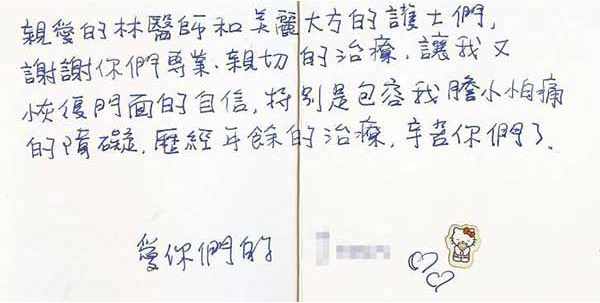 親愛的林醫師和美麗大方的護士們,
謝謝你們專業、親切的治療,讓我又
恢復門面的自信,特別是包容我膽小怕痛
的障礙,歷經年餘的治療,辛苦你們了.
愛你們的